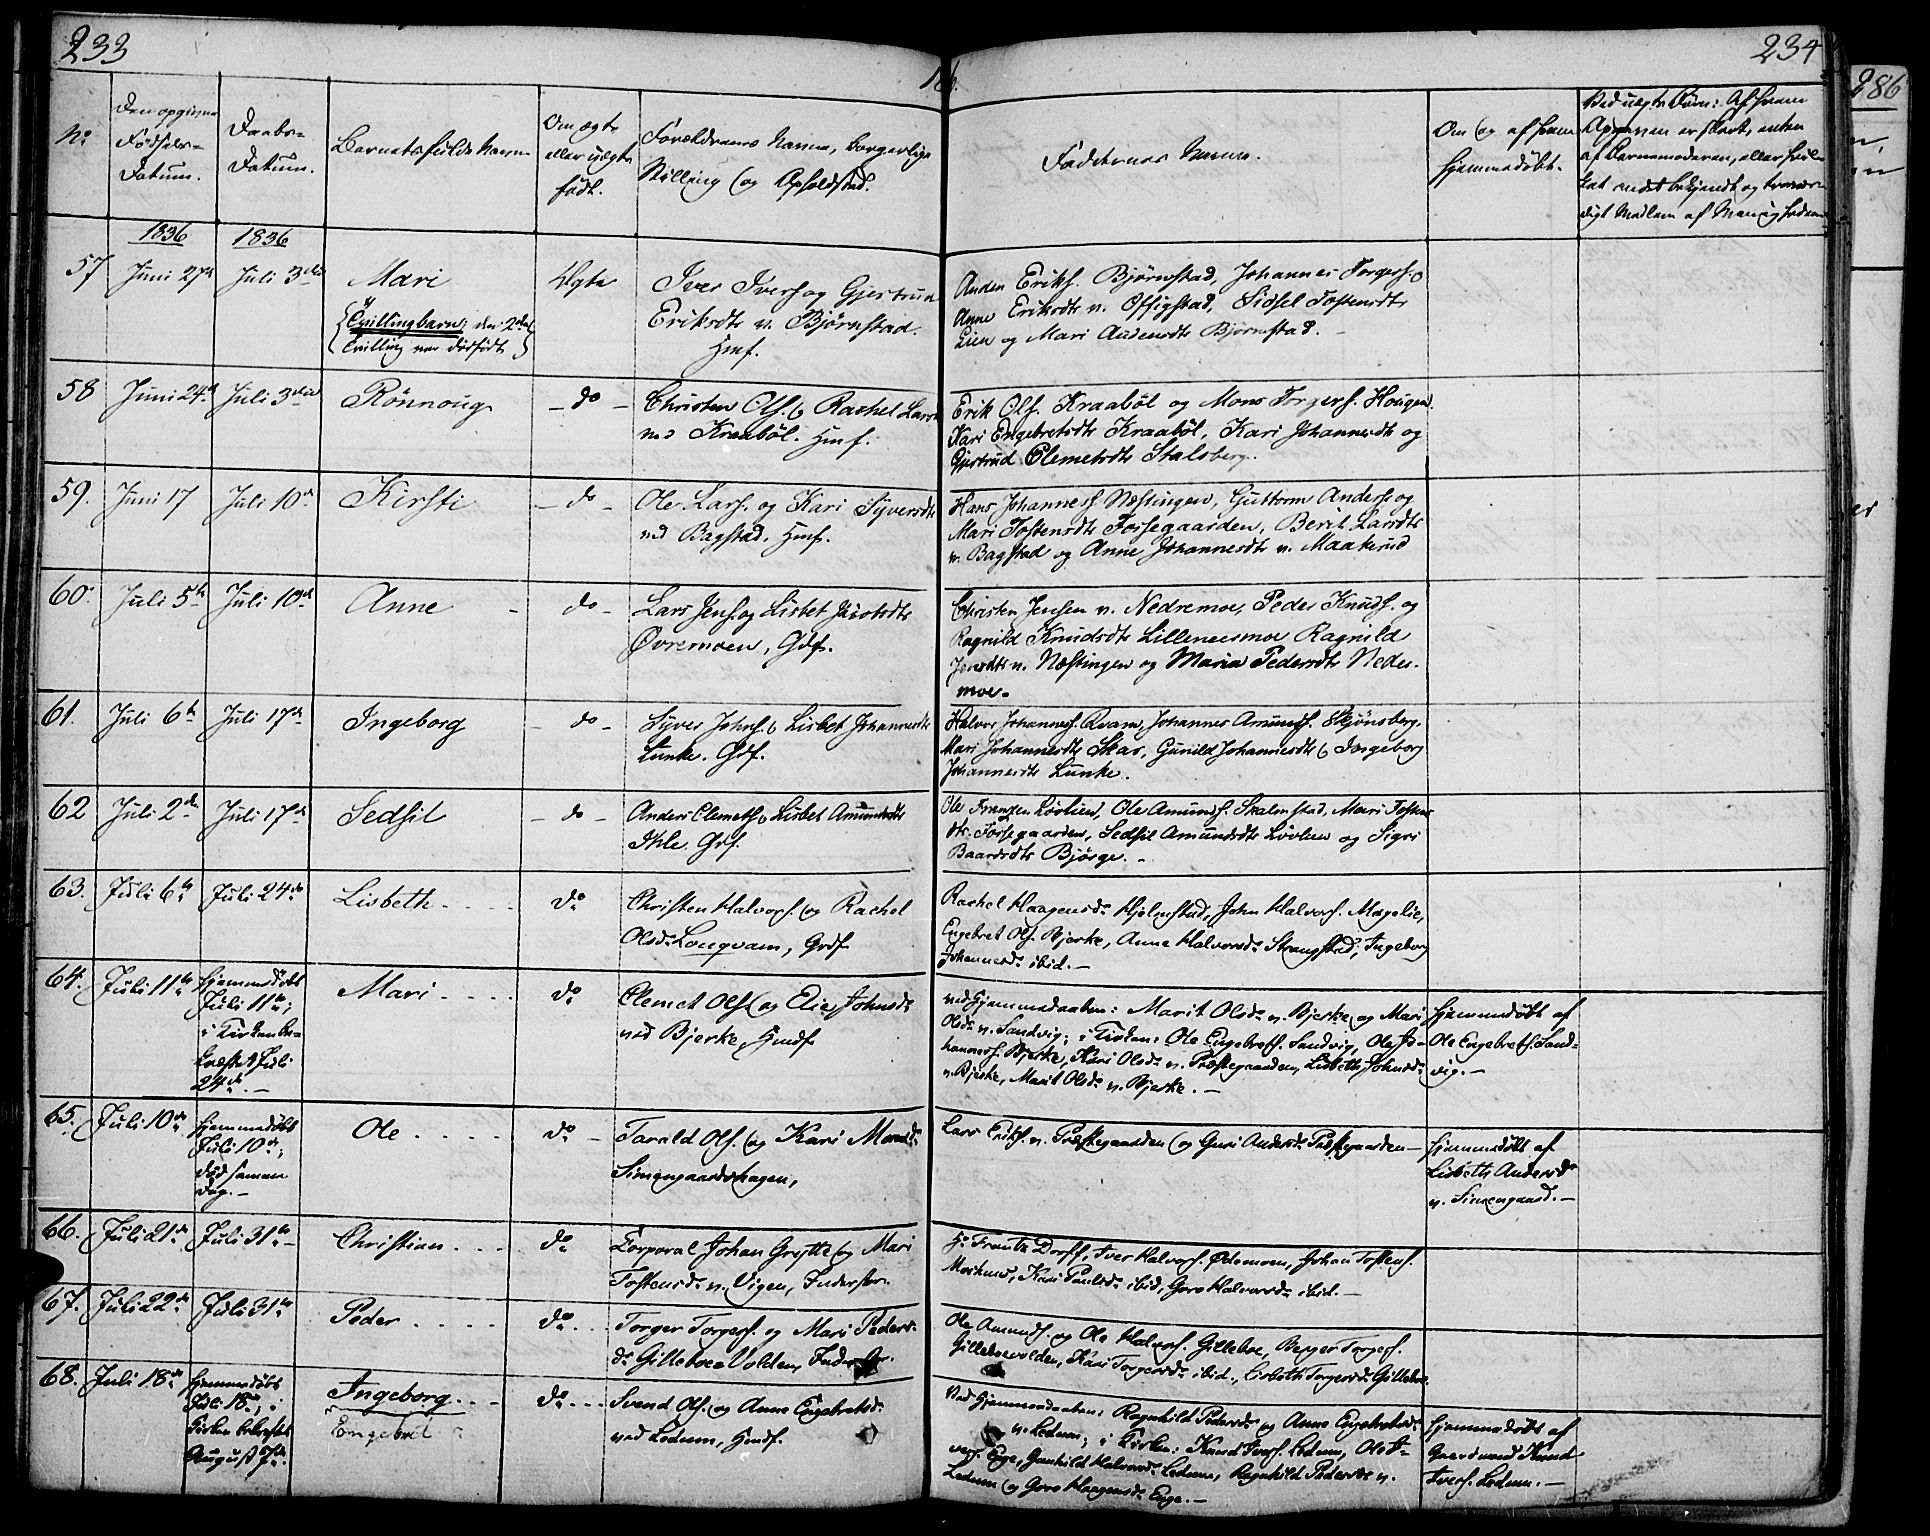 233
234
186.
286
No
Den opgivne Fødsels-Datum.
Daabs-Datum.
Barnets fulde Navn
Om ægte eller uægte født.
Forældrenes Navne, borgerlige Stilling og Opholdssted.
Faddernes Navne.
Om og af hvem hjemmedøbt.
Ved uægte Børn: Af hvem
Opgaven er skeet, enten
af Barnemoderen, eller hvil-
ket andet bekjendt og trovær-
digt Medlem af Menigheden
1836 1836
57 Juni 27de Juli 3die Mari
{Tvillingbarn; den 2den
Tvilling var dødfødt}
Ægte
Iver Ivers. og Gjertrud
Eriksdtr v. Bjørnstad.
Hmf.
Anden Eriks. Bjørnstad, Johannes Torgers. o
Anne Eriksdtr v. Offigstad, Sidsel Tostensdtr
Lien og Mari Audensdtr Bjørnstad. -
58 Juni 24de Juli 3die Rönnoug - do -
Christen Ols. & Rachel Larsdtr
ved Kraaböl. Hmf.
Erik Ols. Kraaböl og Mons Torgers. Hougen.
Kari Engebretsdtr Kraaböl, Kari Johannesdtr og
Gjertrud Clemetsdtr Stalsberg.
59. Juni 17 Juli 10de Kirsti - do -
Ole Lars. og Kari Syversdtr
ved Bagstad. Hmf.
Hans Johannes. Næstingen, Guttorm Anders. og
Mari Tostensdtr Forsegaarden, Berit Larsdtr
v. Bagstad og Anne Johannesdtr v. Maakerud
60. Juli 5te Juli 10de Anne - do -
Lars Jens. og Lisbet Jacobsdtr
Øvremoen, Gdf.
Christen Jensen v. Nedremoe, Peder Knuds. og
Ragnild Knudsdtr Lilleneesmoe Ragnild
Jensdtr v. Næstingen og Maria Pedersdtr Neder-
moe.
61. Juli 6te Juli 17de Ingeborg - do -
Syver Johns. & Lisbet Johannesdtr
Lunke. Gdf.
Halvor Johannes. Kvam, Johannes Amunds. Skjönsberg.
Mari Johannesdtr Skar, Gunild Johannesdtr & Ingeborg
Johannesdtr Lunke.
62 Juli 2den Juli 17de Sedsil - do -
Anders Clemets. & Lisbet Amundsdtr
Ihle. Gdf.
Ole Frandsen Lövlien, Ole Amunds. Skalmstad, Mari Tostens
dtr Forsegaarden, Sedsil Amundsdtr Lövlien og Sigri
Baardsdtr Bjørge. -
63. Juli 6te Juli 24de Lisbeth . . . . do
Christen Halvors. og Rachel
Olsdr Longvam, Grdf.
Rachel Haagensdr Hjelmstad, John Halvors. Magelie,
Engebret Ols. Bjerke, Anne Halvorsdr Strangstad, Ingeborg
Johannesdr ibid. -
64. Juli 11te Hjemmedöbt
Juli 11te;
i Kirken be-
kræftet Juli
24de. -
Mari . . . . do
Clemet Ols. og Eli Johnsdr
ved Bjerke, Hmdf.
ved Hjemmedaaben: Marit Olsdr v. Bjerke og Mari
Olsdr v. Sandvig; i Kirken: Ole Engebreths. Sandvig, Ole Jo-
hannes. Bjerke, Kari Olsdr v. Præstegaarden, Lisbeth Johnsdr
v. Bjerke, Marit Olsdr v. Bjerke. -
Hjemmedöbt af
Ole Engebreths. Sand-
vig. -
65. Juli 10de Hjemmedöbt
Juli 10de;
död samme
Dag. -
Ole . . . . do -
Tarald Ols. og Kari Monsdr
Simengaardshagen,
Lars Eriks. v. Præstegaarden og Guri Andersdr Præstegaarden -
Hjemmedöbt af
Lisbeth Andersdr
v. Simengaard. -
66. Juli 21de Juli 31te - Christian . . . do
Corporal Johan Grytte og Mari
Tostensdr v. Vigen, Inderster.
Hr Frantz Dorff, Iver Halvors. Ødemoen, Johan Tostens.
Moshuus, Kari Paulsdr ibid, Goro Halvorsdr ibid. -
67. Juli 22de Juli 31te Peder . . . . do . . .
Torger Torgers. og Mari Peders-
dr Gilleboe Volden, Inderster.
Ole Amunds. og Ole Halvors. Gilleboe, Torger Torgers.
Gilleboevolden, Kari Torgersdr ibid., Lisbeth Torgersdr Gilleboe.
68. Juli 18de Hjemmedöbt
Juli 18de; i
Kirken bekræftet
August 7de.
Ingeborg . . .
Engebret
do . . .
Svend Ols. og Anne Engebretsdr
ved Ledum, Hmdf.
Ved Hjemmedaaben: Ragnhild Pedersdr og Anne Engebretsdr
v. Ledum; i Kirken: Knud Ivers. Ledum, Ole I-
vers. Enge, Gunhild Halvorsdr Ledum, Ragnhild Pedersdr v.
Ledum og Goro Haagensdr Enge. -
Hjemmedöbt af
Gaardmand Knud
Ivers. Ledum. -